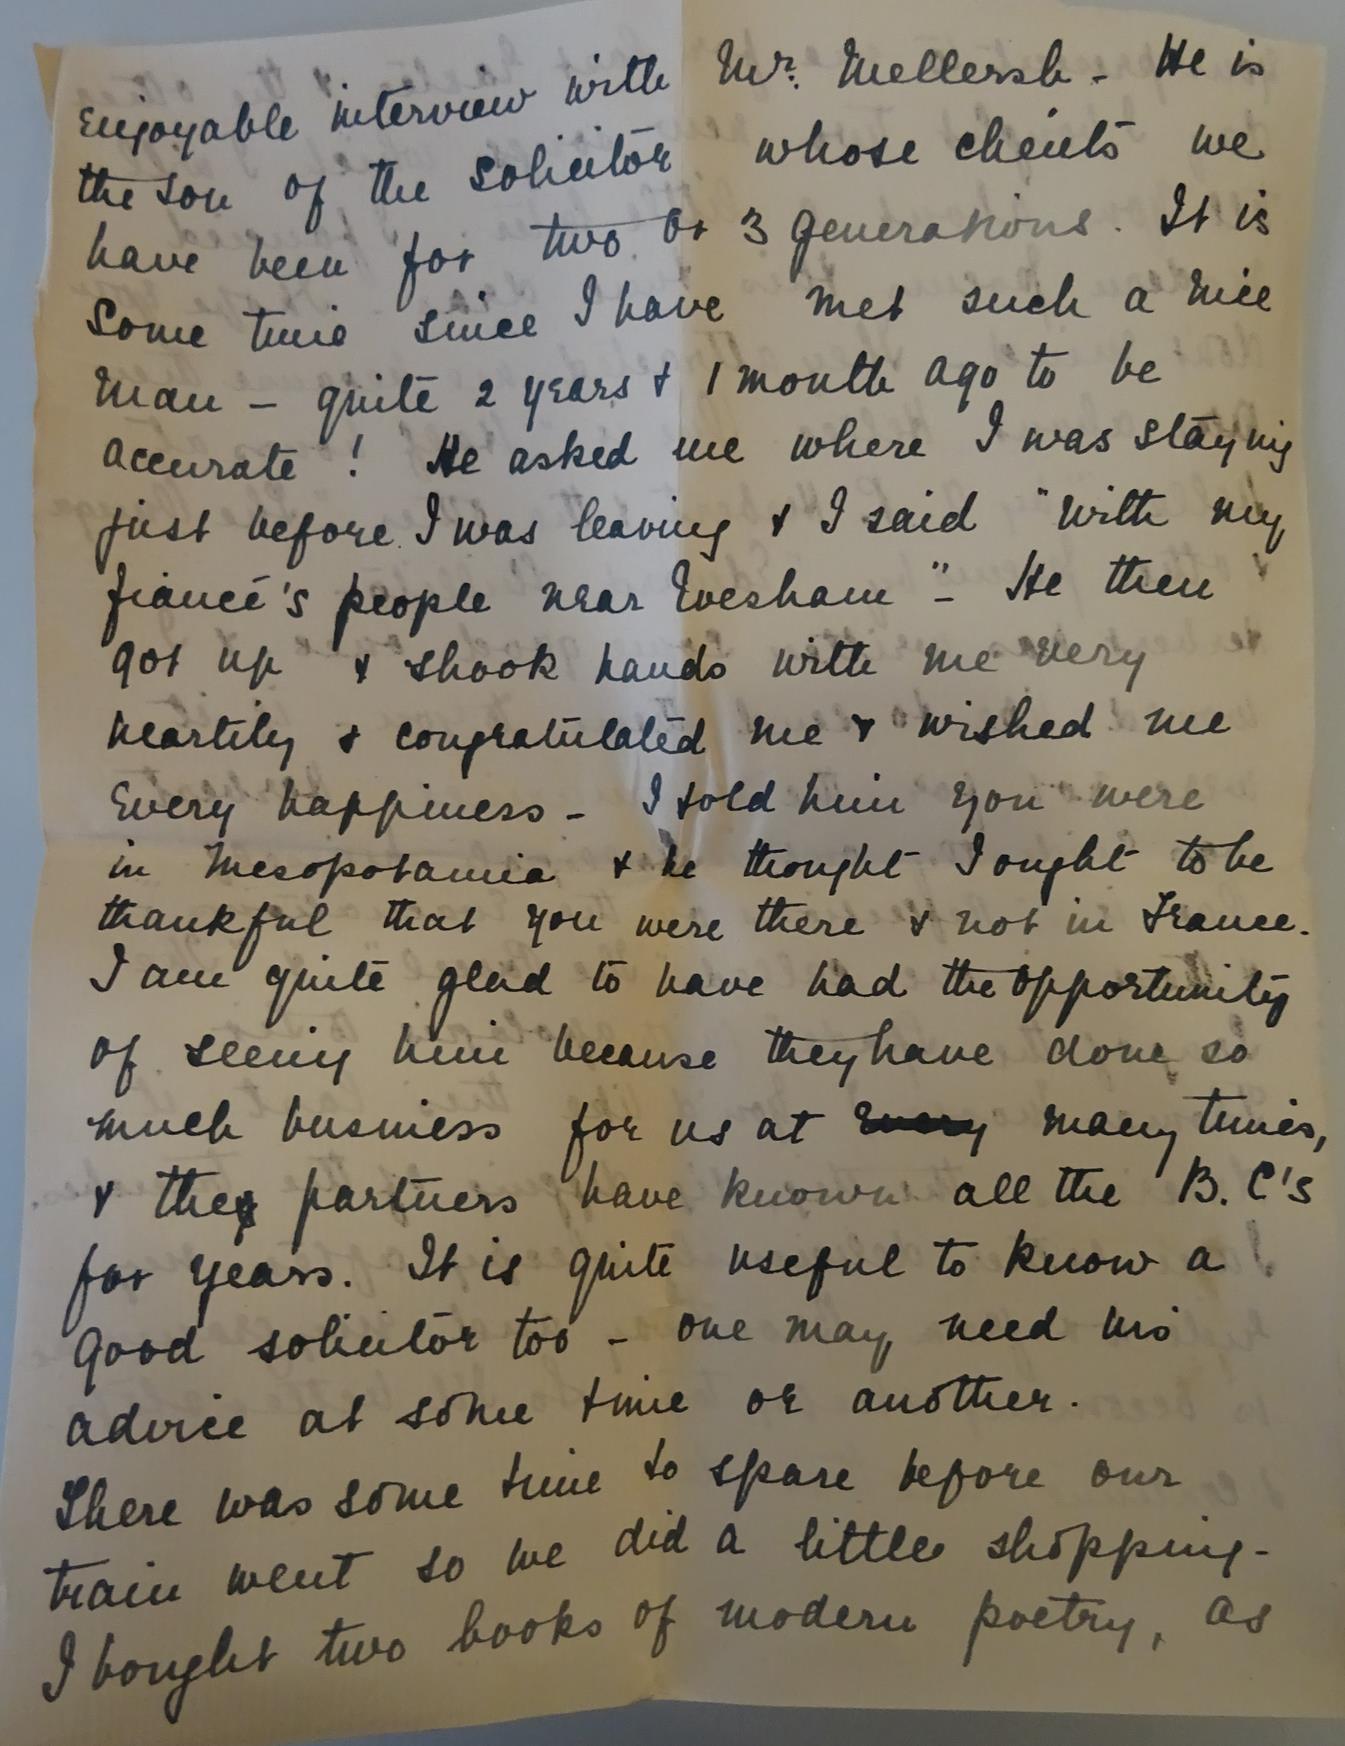 enjoyable interview with Mr. Mellersh - He is
the son of the Solicitor whose clients we
have been for two or 3 generations. It is
Some time since I have met such a nice
man - quite 2 years & 1 month ago to be
accurate ! He asked me where I was staying
just before I was leaving & I said "with my
fiancé's people near Evesham" - He then
got up & shook hands with me very
heartily & congratulated me & wished me
every happiness - I told him you were
in Mesopotamia & he thought I ought to be
thankful that you were there & not in France.
I am quite glad to have had the opportunity
of seeing him because they have done so
much business for us at every many times,
& they partners have known all the B. C's
for years. It is quite useful to know a
good solicitor too - one may need his
advice at some time or another.
There was some time to spare before our
train went so we did a little shopping -
I bought two books of modern poetry, as